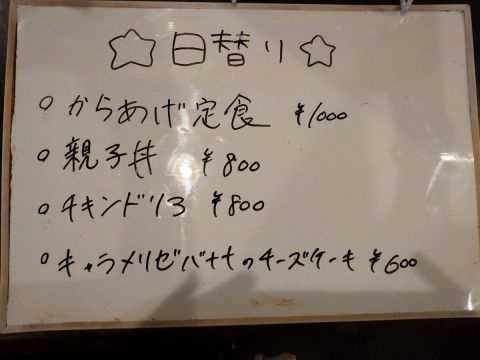 ☆日替り☆
○ からあげ定食 ¥1000
○ 親子丼 ¥800
○ チキンドリア ¥800
○ キャラメリゼバナナのチーズケーキ ¥600